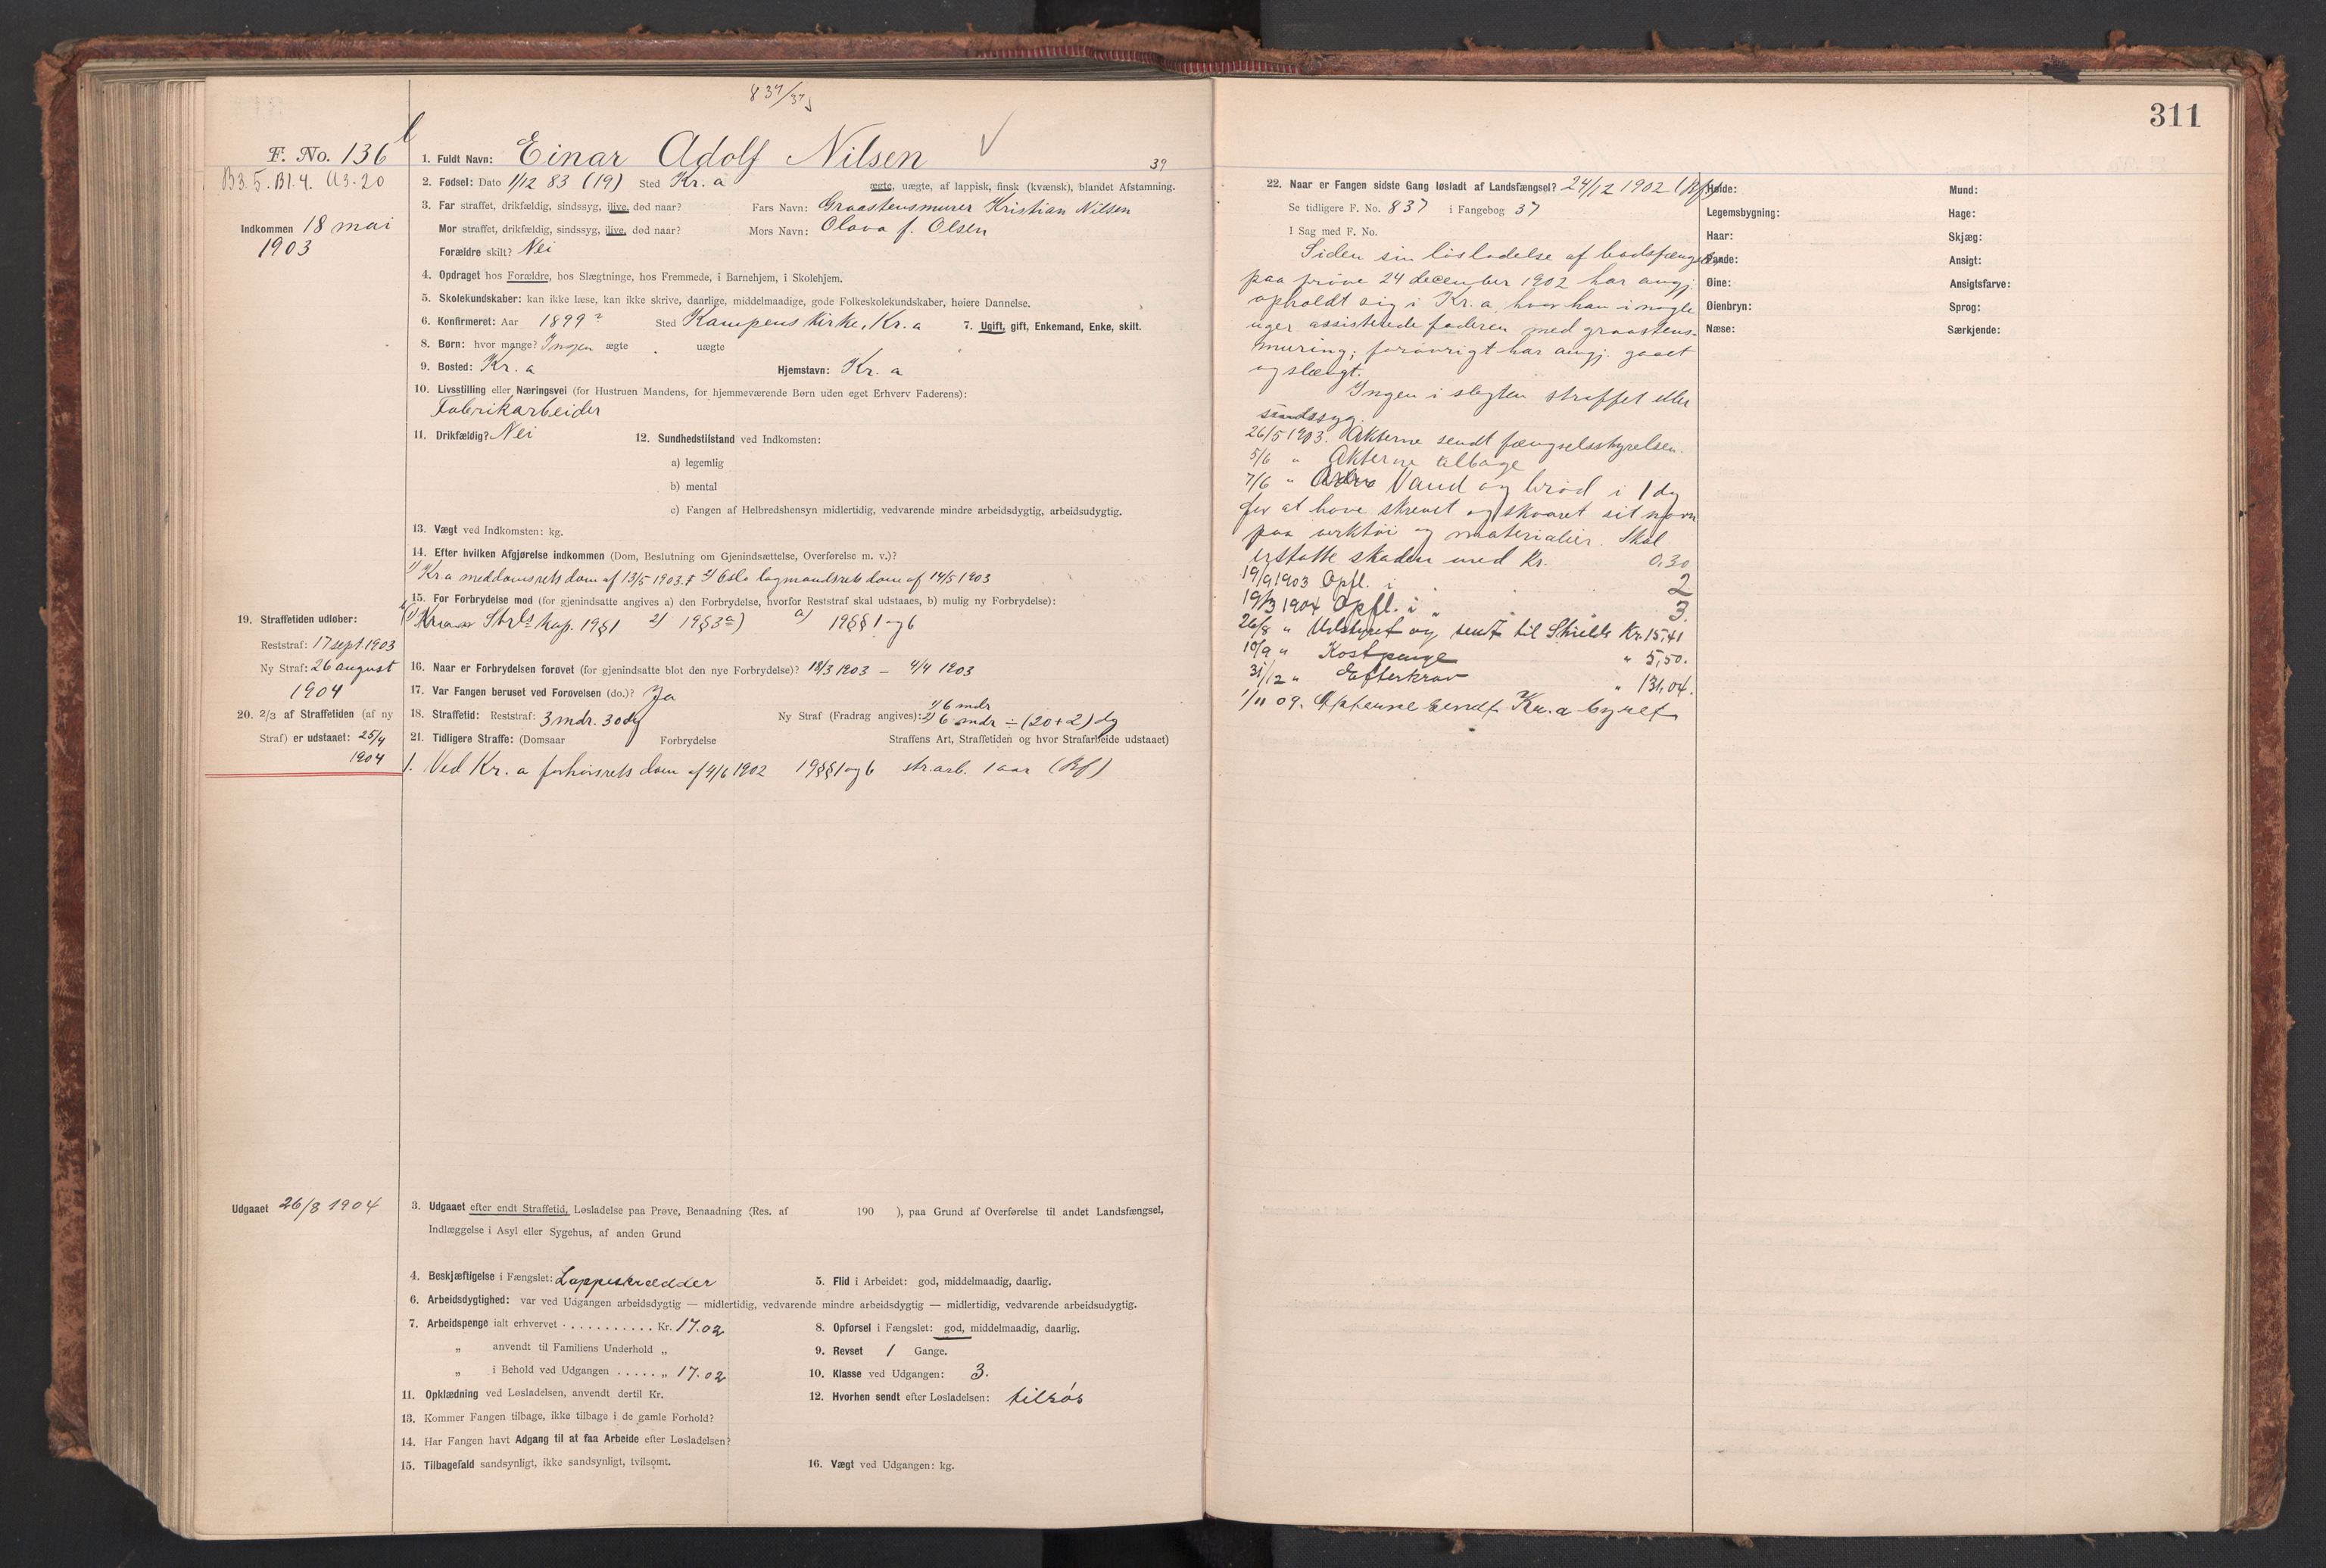 837/37
F. No. 136
B3.5. Bl.4. A3-20
Indkommen 18 mai
1903
1. Fuldt Navn: Einar Adolf Nilsen
39
2. Fødsel: Dato 1/12 83 (19) Sted Kr. a ægte, uægte, af lappisk, finsk (kvænsk), blandet Afstamning.
3. Far straffet, drikfældig, sindssyg, ilive, død naar? Fars Navn: Graastensmurer Kristian Nilsen
Mor straffet, drikfældig, sindssyg, ilive, død naar? Mors Navn: Olava f. Olsen
Forældre skilt? Nei
4. Opdraget hos Forældre, hos Slægtninge, hos Fremmede, i Barnehjem, i Skolehjem.
5. Skolekundskaber: kan ikke læse, kan ikke skrive, daarlige, middelmaadige, gode Folkeskolekundskaber, høiere Dannelse.
6. Konfirmeret: Aar 1899? Sted Kampens Kirke, Kr. a 7. Ugift, gift, Enkemand, Enke, skilt.
8. Børn: hvor mange? Ingen ægte uægte
9. Bosted: Kr. a Hjemstavn: Kr. a
10. Livsstilling eller Næringsvei (for Hustruen Mandens, for hjemmeværende Børn uden eget Erhverv Faderens):
Fabrikarbeider
11. Drikfældig? Nei 12. Sundhedstilstand ved Indkomsten:
a) legemlig
b) mental
c) Fangen af Helbredshensyn midlertidig, vedvarende mindre arbeidsdygtig, arbeidsudygtig.
13. Vægt ved Indkomsten: kg.
14. Efter hvilken Afgjørelse indkommen (Dom, Beslutning om Gjenindsættelse, Overførelse m. v.)?
1) Kr a meddomsrets dom af 13/5 1903. 2) Oslo lagmandsrets dom af 14/5 1903
15. For Forbrydelse mod (for gjenindsatte angives a) den Forbrydelse, hvorfor Reststraf skal udstaaes, b) mulig ny Forbrydelse):
Strls kap. 19§1 2) 19§3a) a) 19§§1 og 6
16. Naar er Forbrydelsen forøvet (for gjenindsatte blot den nye Forbrydelse)? 18/3 1903 — 4/4 1903
17. Var Fangen beruset ved Forøvelsen (do.)? Ja
18. Straffetid: Reststraf: 3 mdr. 30 dg Ny Straf (Fradrag angives): 1) 6 mdr
2) 6 mdr ÷ (20+2) dg
19. Straffetiden udløber:
Reststraf: 17 sept. 1903
Ny Straf: 26 august
1904
20. 2/3 af Straffetiden (af ny
Straf) er udstaaet: 25/4
1904
21. Tidligere Straffe: (Domsaar Forbrydelse Straffens Art, Straffetiden og hvor Strafarbeide udstaaet)
1. Ved Kr. a forhørsrets dom af 4/6 1902 19§§1 og 6 str. arb. 1 aar (Bf)
Udgaaet 26/8 1904
3. Udgaaet efter endt Straffetid, Løsladelse paa Prøve, Benaadning (Res. af 190 ), paa Grund af Overførelse til andet Landsfængsel,
Indlæggelse i Asyl eller Sygehus, af anden Grund
4. Beskjæftigelse i Fængslet: Lappeskrædder 5. Flid i Arbeidet: god, middelmaadig, daarlig.
6. Arbeidsdygtighed: var ved Udgangen arbeidsdygtig — midlertidig, vedvarende mindre arbeidsdygtig — midlertidig, vedvarende arbeidsudygtig.
7. Arbeidspenge ialt erhvervet . . . . . . . . . . . Kr. 17.02 8. Opførsel i Fængslet: god, middelmaadig, daarlig.
„ anvendt til Familiens Underhold „ 9. Revset 1 Gange.
„ i Behold ved Udgangen . . . . . „ 17.02 10. Klasse ved Udgangen: 3.
11. Opklædning ved Løsladelsen, anvendt dertil Kr. 12. Hvorhen sendt efter Løsladelsen: tilsøs
13. Kommer Fangen tilbage, ikke tilbage i de gamle Forhold?
14. Har Fangen havt Adgang til at faa Arbeide efter Løsladelsen?
15. Tilbagefald sandsynligt, ikke sandsynligt, tvilsomt. 16. Vægt ved Udgangen: kg.
311
22. Naar er Fangen sidste Gang løsladt af Landsfængsel? 24/12 1902 (Bf)
Se tidligere F. No. 837 i Fangebog 37
I Sag med F. No.
Siden sin løsladelse af bodsfængslet
paa prøve 24 december 1902 har angj.
opholdt sig i Kr. a, hvor han i nogle
uger assisterede faderen med graastens-
muring; forøvrigt har angj. gaaet
og slængt.
Ingen i slegten straffet eller
sindssyg.
26/5 1903. Akterne sendt fængselsstyrelsen.
5/6 " Akterne tilbage
7/6 " Vand og brød i 1 dg
for at have skrevet og skaaret sit navn
paa verktøi og materialier. Skal
erstatte skaden med Kr. 0,30
19/9 1903 Opfl. i 2
19/3 1904 Opfl. i " 3.
26/8 " Udstyret og sendt til Shields Kr. 15,41
10/9 " Kostpenge " 5,50.
31/12 " Efterkrav " 131,04.
1/11 09. Akterne sendt Kr. a byret
Høide:
Legemsbygning:
Haar:
Pande:
Øine:
Øienbryn:
Næse:
Mund:
Hage:
Skjæg:
Ansigt:
Ansigtsfarve:
Sprog:
Særkjende: